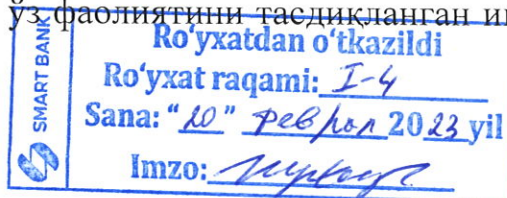 ўз фаолиятини тасдиқланган
SMART BANK
Ro'yxatdan o'tkazildi
Ro'yxat raqami: I-4
Sana: "20" феврал 2023 yil
Imzo: